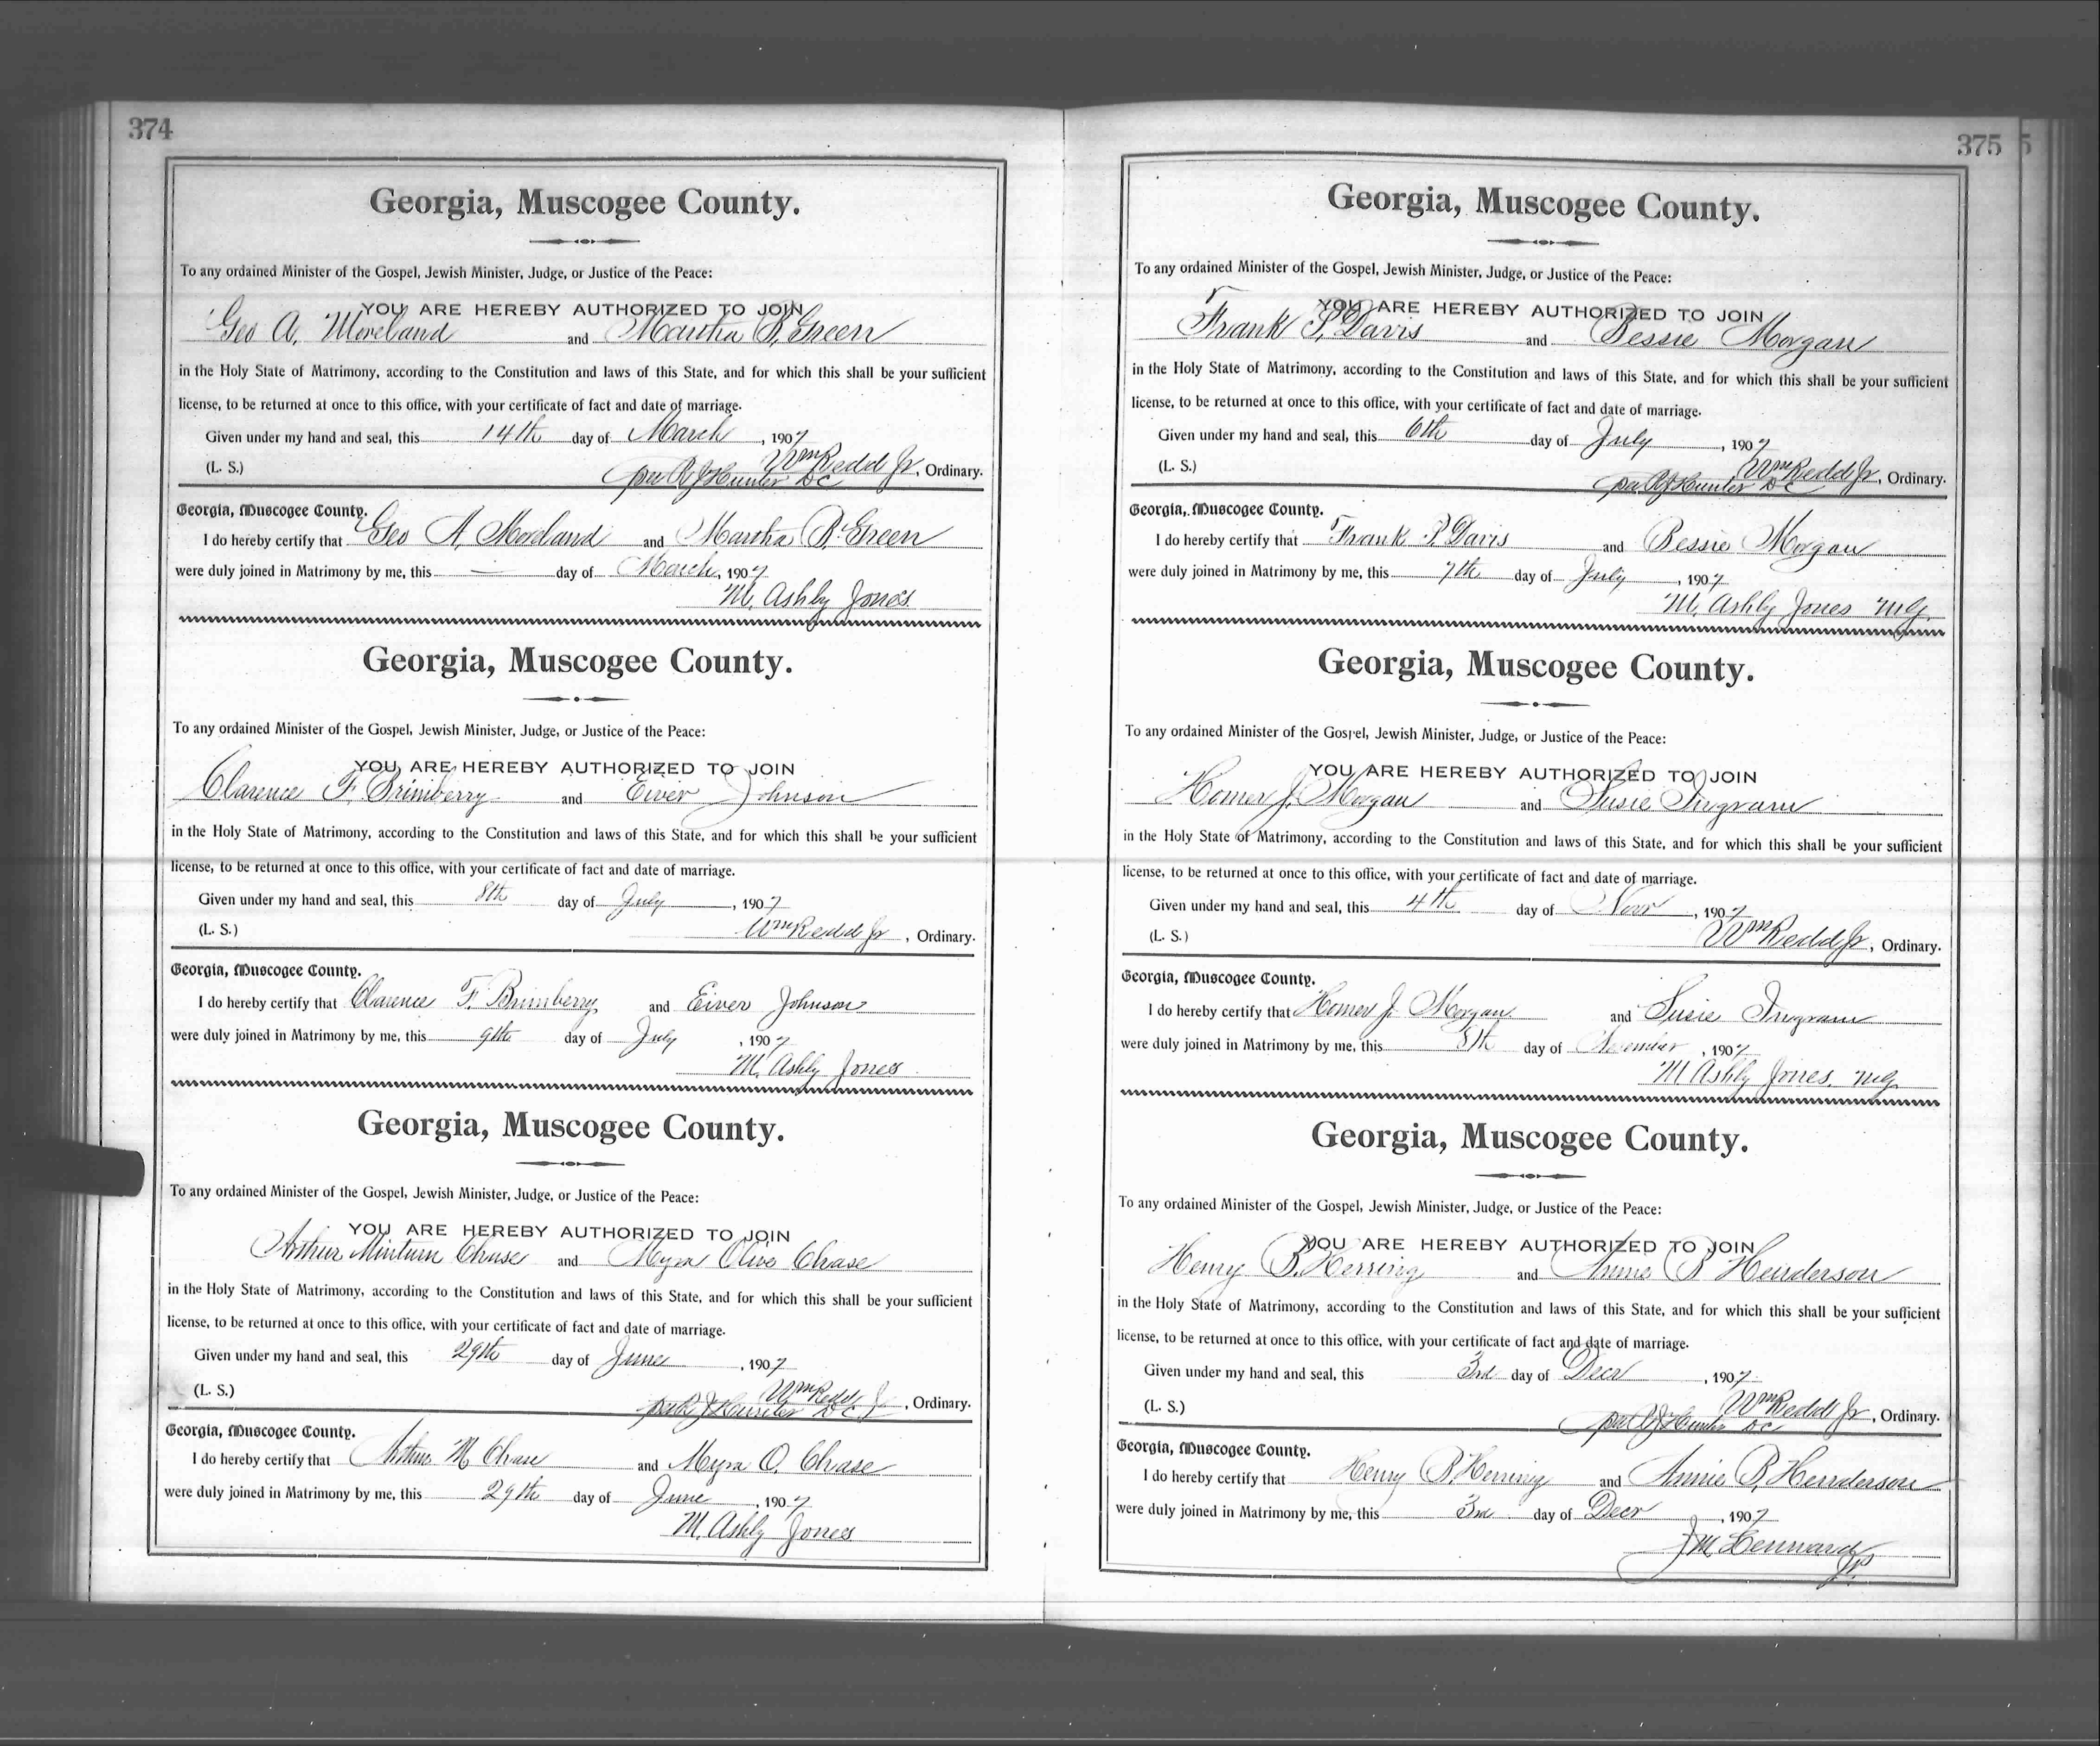 374
Georgia, Muscogee County.
To any ordained Minister of the Gospel, Jewish Minister, Judge, or Justice of the Peace:
YOU ARE HEREBY AUTHORIZED TO JOIN
Geo A. Moreland and Martha B. Green
in the Holy State of Matrimony, according to the Constitution and laws of this State, and for which this shall be your sufficient
license, to be returned at once to this office, with your certificate of fact and date of marriage.
Given under my hand and seal, this 14th day of March, 1907
(L. S.) Wm Redd Jr, Ordinary.
per R J Hunter DC
Georgia, Muscogee County.
I do hereby certify that Geo A. Moreland and Martha B. Green
were duly joined in Matrimony by me, this — day of March, 1907
M. Ashby Jones
Georgia, Muscogee County.
To any ordained Minister of the Gospel, Jewish Minister, Judge, or Justice of the Peace:
YOU ARE HEREBY AUTHORIZED TO JOIN
Clarence F. Brimberry and Eiver Johnson
in the Holy State of Matrimony, according to the Constitution and laws of this State, and for which this shall be your sufficient
license, to be returned at once to this office, with your certificate of fact and date of marriage.
Given under my hand and seal, this 8th day of July, 1907
(L. S.) Wm Redd Jr, Ordinary.
Georgia, Muscogee County.
I do hereby certify that Clarence F. Brimberry and Eiver Johnson
were duly joined in Matrimony by me, this 9th day of July, 1907
M. Ashby Jones
Georgia, Muscogee County.
To any ordained Minister of the Gospel, Jewish Minister, Judge, or Justice of the Peace:
YOU ARE HEREBY AUTHORIZED TO JOIN
Arthur Minturn Chase and Myra Olive Chase
in the Holy State of Matrimony, according to the Constitution and laws of this State, and for which this shall be your sufficient
license, to be returned at once to this office, with your certificate of fact and date of marriage.
Given under my hand and seal, this 29th day of June, 1907
(L. S.) Wm Redd Jr, Ordinary.
per R J Hunter DC
Georgia, Muscogee County.
I do hereby certify that Arthur M Chase and Myra O. Chase
were duly joined in Matrimony by me, this 29th day of June, 1907
M. Ashby Jones
375
5
Georgia, Muscogee County.
To any ordained Minister of the Gospel, Jewish Minister, Judge, or Justice of the Peace:
YOU ARE HEREBY AUTHORIZED TO JOIN
Frank P. Davis and Bessie Morgan
in the Holy State of Matrimony, according to the Constitution and laws of this State, and for which this shall be your sufficient
license, to be returned at once to this office, with your certificate of fact and date of marriage.
Given under my hand and seal, this 6th day of July, 1907
(L. S.) Wm Redd Jr, Ordinary.
per R J Hunter DC
Georgia, Muscogee County.
I do hereby certify that Frank P. Davis and Bessie Morgan
were duly joined in Matrimony by me, this 7th day of July, 1907
M. Ashby Jones M.G.
Georgia, Muscogee County.
To any ordained Minister of the Gospel, Jewish Minister, Judge, or Justice of the Peace:
YOU ARE HEREBY AUTHORIZED TO JOIN
Homer J. Morgan and Susie Ingram
in the Holy State of Matrimony, according to the Constitution and laws of this State, and for which this shall be your sufficient
license, to be returned at once to this office, with your certificate of fact and date of marriage.
Given under my hand and seal, this 4th day of Novr, 1907
(L. S.) Wm Redd Jr, Ordinary.
Georgia, Muscogee County.
I do hereby certify that Homer J. Morgan and Susie Ingram
were duly joined in Matrimony by me, this 8th day of November, 1907
M Ashby Jones. M.G.
Georgia, Muscogee County.
To any ordained Minister of the Gospel, Jewish Minister, Judge, or Justice of the Peace:
YOU ARE HEREBY AUTHORIZED TO JOIN
Henry B. Herring and Annie B Henderson
in the Holy State of Matrimony, according to the Constitution and laws of this State, and for which this shall be your sufficient
license, to be returned at once to this office, with your certificate of fact and date of marriage.
Given under my hand and seal, this 3rd day of Decr, 1907
(L. S.) Wm Redd Jr, Ordinary.
per R J Hunter DC
Georgia, Muscogee County.
I do hereby certify that Henry B Herring and Annie B. Henderson
were duly joined in Matrimony by me, this 3rd day of Decr, 1907
J M Lennard